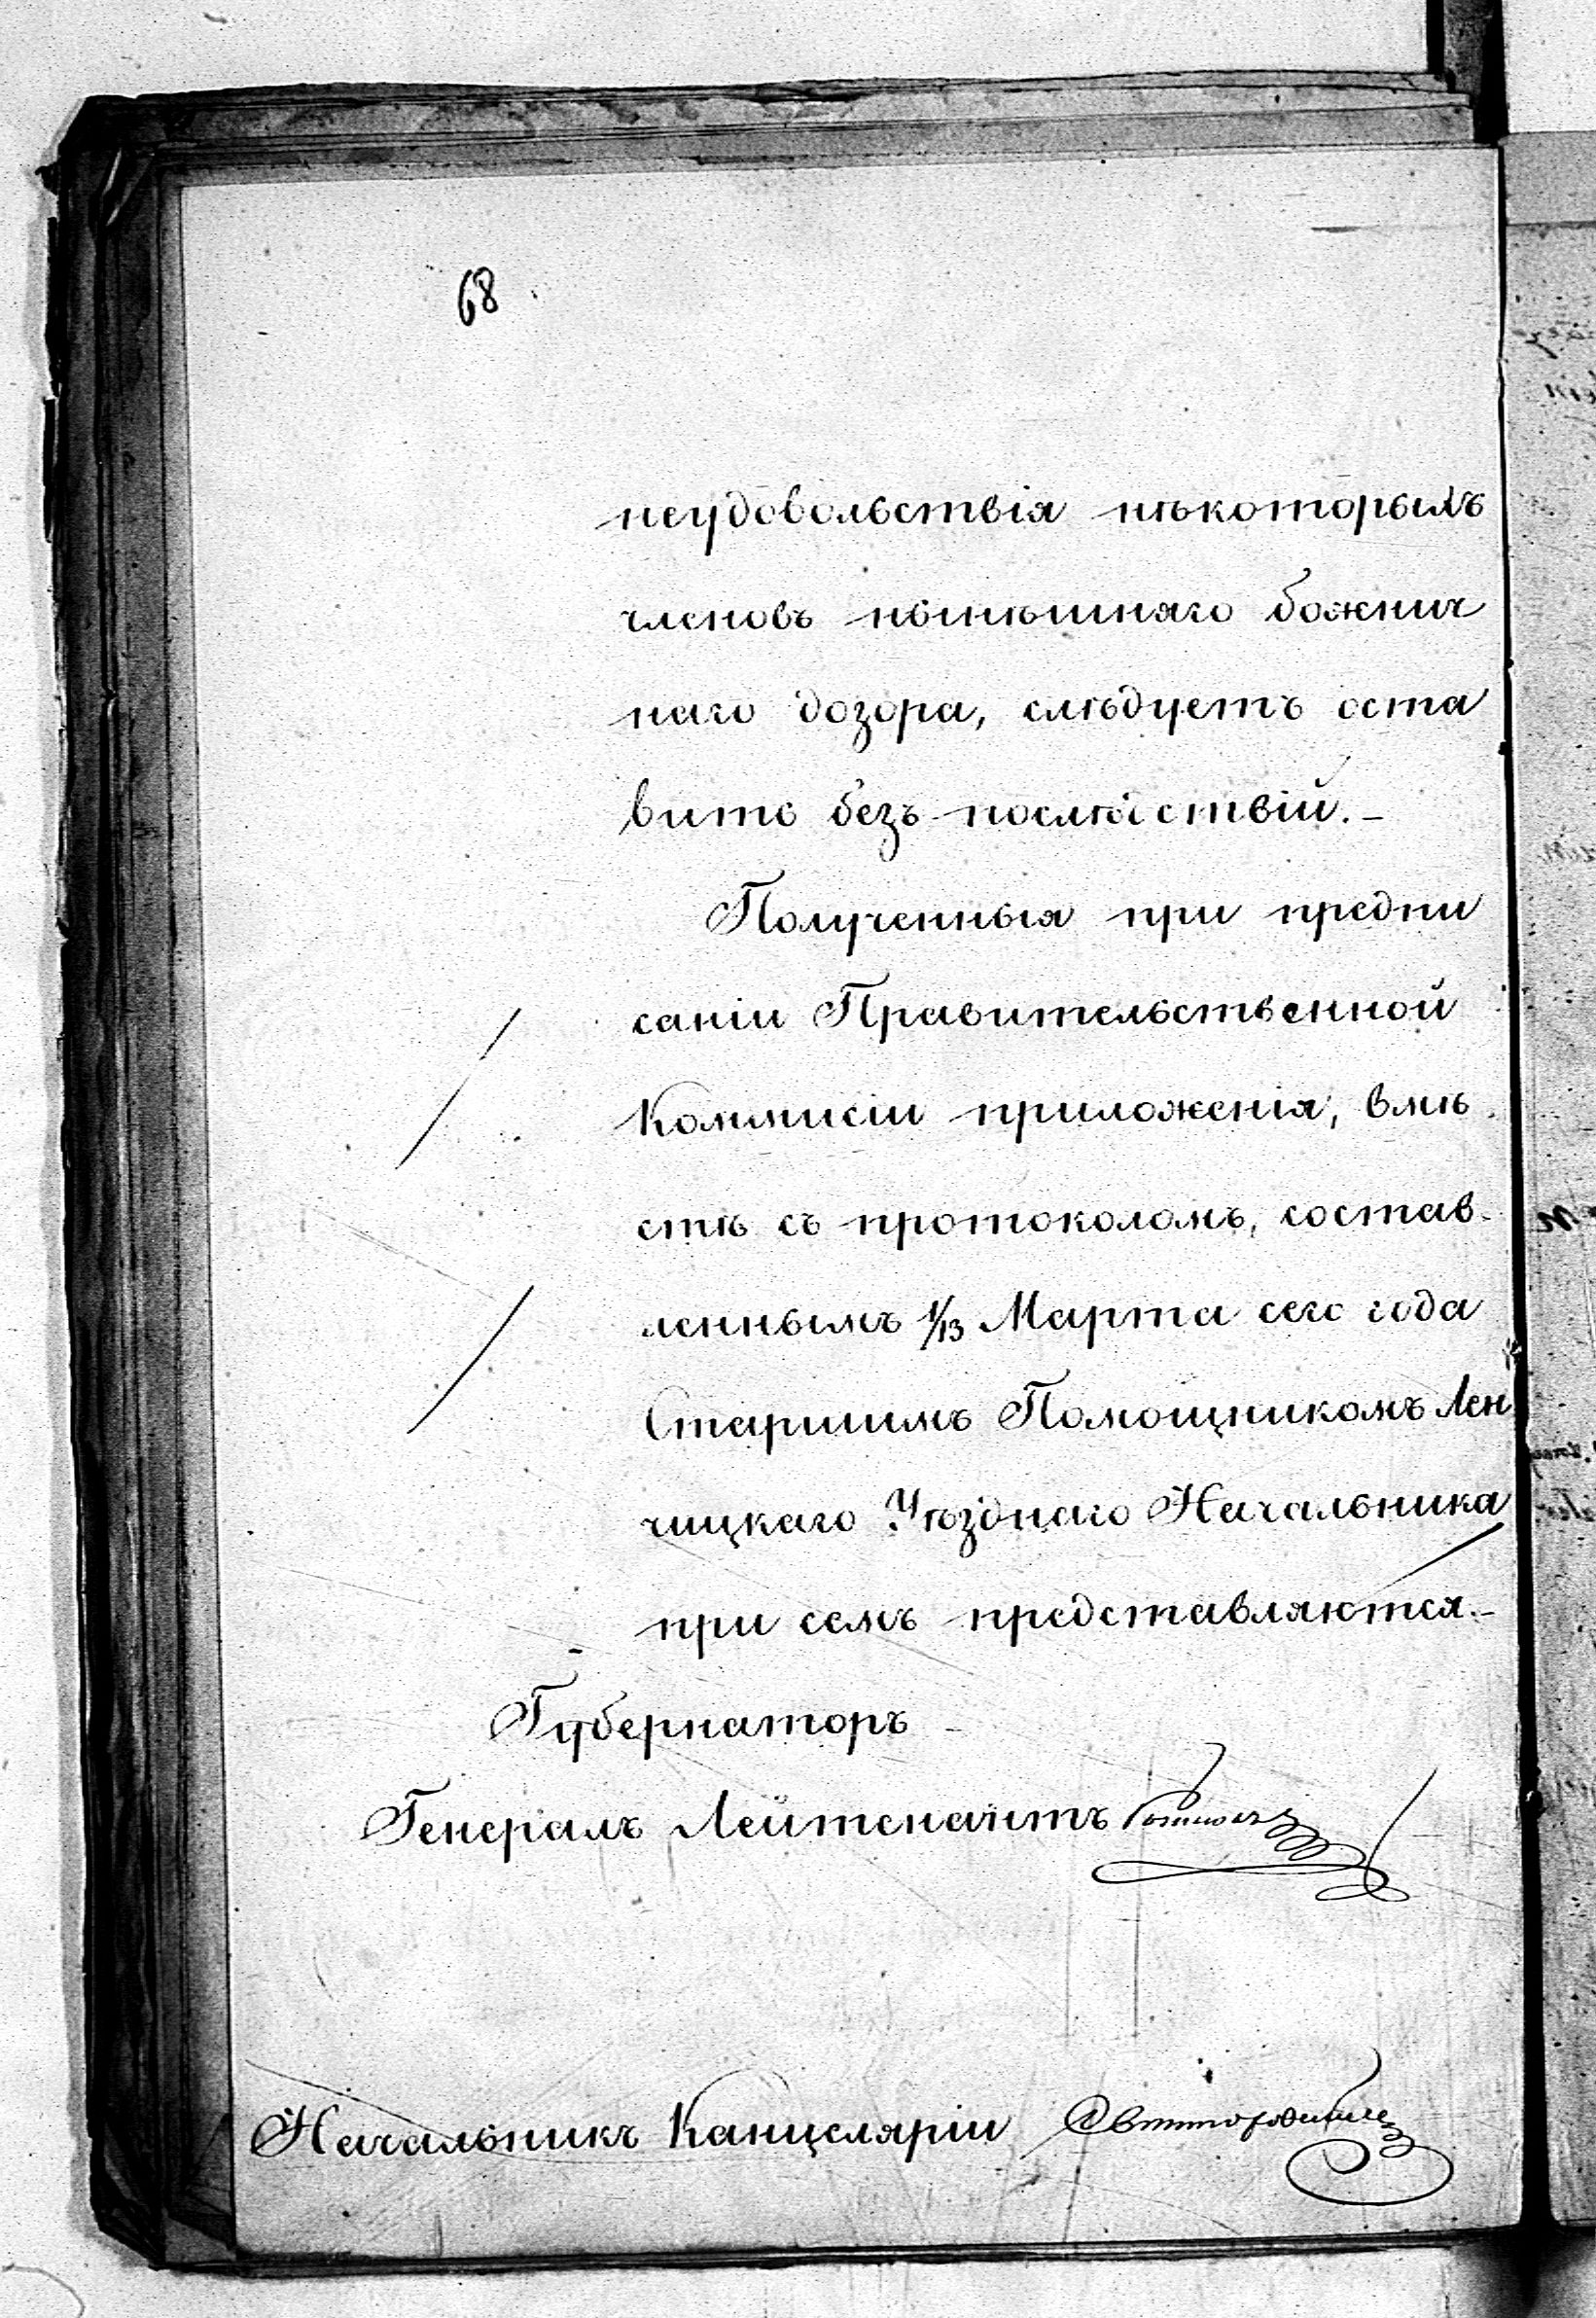 68
неудовольствія нѣкоторыхъ
членовъ нынѣшняго божнич
наго дозора, слѣдуетъ оста
вить безъ послѣдствій.–
Полученныя при предпи
саніи Правительственной
Коммисіи приложенія, вмѣ
стѣ съ протоколомъ, состав-
леннымъ 1/13 Марта сего года
Старшимъ Помощникомъ Лен
чицкаго Уѣзднаго Начальника
при семъ представляются.–
Губернаторъ
Генералъ Лейтенантъ
Начальникъ Канцеляріи